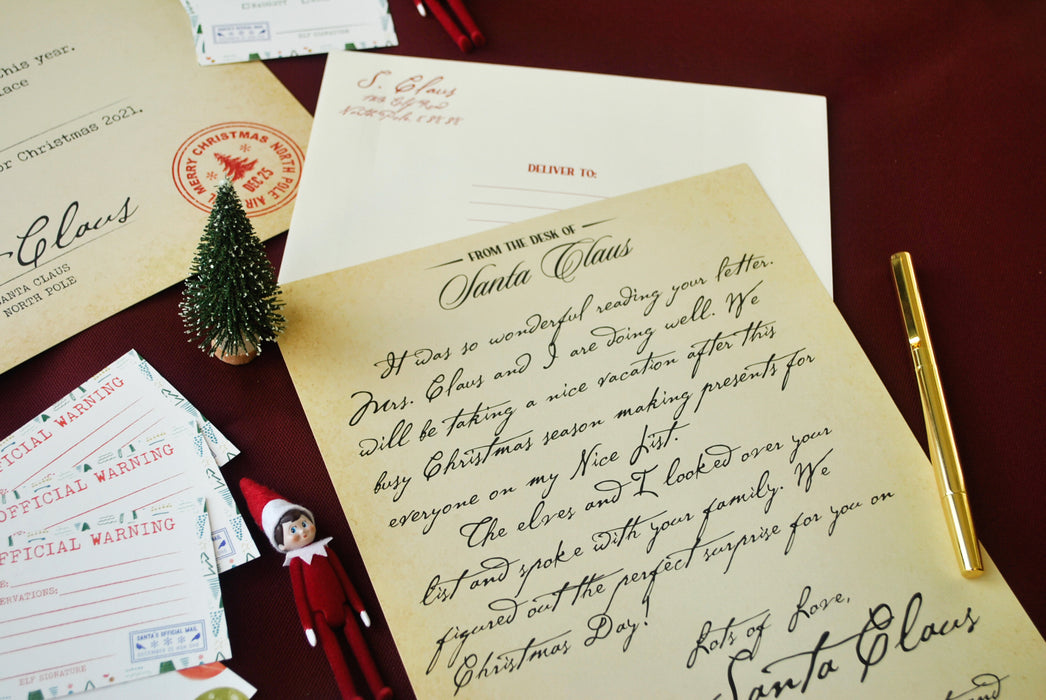 this year.
lace
or Christmas 2021.
MERRY CHRISTMAS NORTH POLE AIR
DEC 25
Claus
SANTA CLAUS
NORTH POLE
SANTA'S OFFICIAL MAIL
ELF SIGNATURE
S. Claus
North Pole, 88888
DELIVER TO:
FROM THE DESK OF
Santa Claus
It was so wonderful reading your letter.
Mrs. Claus and I are doing well. We
will be taking a nice vacation after this
busy Christmas season making presents for
everyone on my Nice List.
The elves and I looked over your
list and spoke with your family. We
figured out the perfect surprise for you on
Christmas Day!
Lots of Love,
Santa Claus
FFICIAL WARNING
OFFICIAL WARNING
FFICIAL WARNING
E:
ERVATIONS:
SANTA'S OFFICIAL MAIL
ELF SIGNATURE